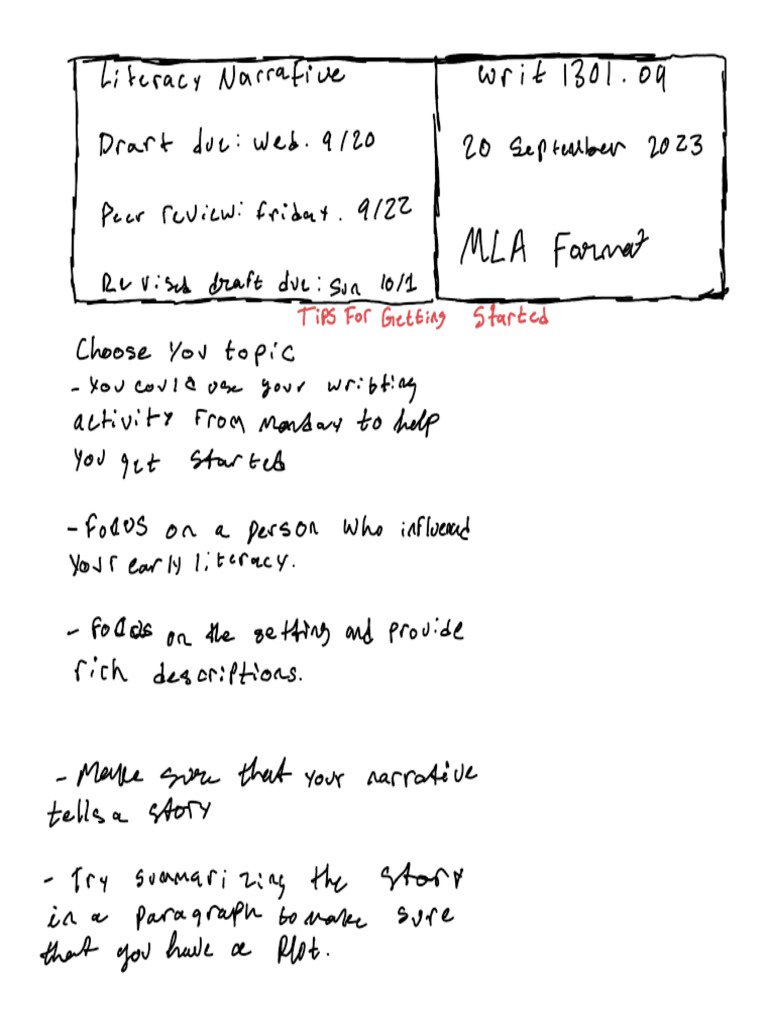 Literacy Narrative
Draft due: Wed. 9/20
Peer review: friday. 9/22
Revised draft due: Sun 10/1
Writ 1301.09
20 September 2023
MLA Format
Tips For Getting Started
Choose You topic
- You could use your writting
activity From Monday to help
You get Started
- Focus on a person who influenced
Your early literacy.
- Focus on the setting and provide
rich descriptions.
- Make sure that your narrative
tells a story
- Try summarizing the story
in a paragraph to make sure
that you have a Plot.